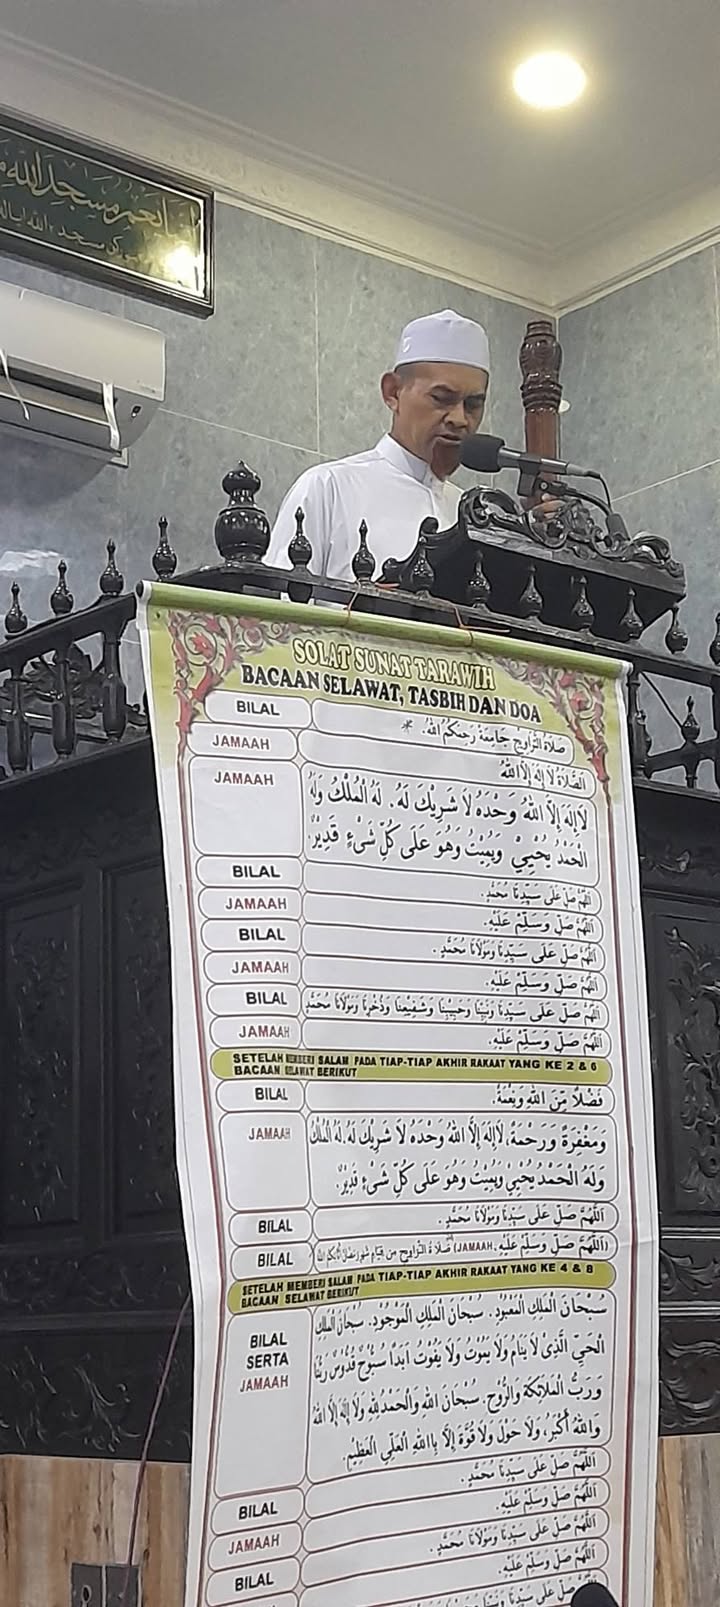 يعمر مسجد الله
SOLAT SUNAT TARAWIH
BACAAN SELAWAT, TASBIH DAN DOA
BILAL صَلَاةَ التَّرَاوِيْحِ جَامِعَةً رَحِمَكُمُ اللهُ. *
JAMAAH اَلصَّلَاةُ لَا إِلَهَ إِلَّا اللهُ
JAMAAH لَا إِلَهَ إِلَّا اللهُ وَحْدَهُ لَا شَرِيْكَ لَهُ. لَهُ الْمُلْكُ وَلَهُ
الْحَمْدُ يُحْيِيْ وَيُمِيْتُ وَهُوَ عَلَى كُلِّ شَيْءٍ قَدِيْرٌ.
BILAL اَللّٰهُمَّ صَلِّ عَلَى سَيِّدِنَا مُحَمَّدٍ.
JAMAAH اَللّٰهُمَّ صَلِّ وَسَلِّمْ عَلَيْهِ.
BILAL اَللّٰهُمَّ صَلِّ عَلَى سَيِّدِنَا وَمَوْلَانَا مُحَمَّدٍ.
JAMAAH اَللّٰهُمَّ صَلِّ وَسَلِّمْ عَلَيْهِ.
BILAL اَللّٰهُمَّ صَلِّ عَلَى سَيِّدِنَا وَنَبِيِّنَا وَحَبِيْبِنَا وَشَفِيْعِنَا وَذُخْرِنَا وَمَوْلَانَا مُحَمَّدٍ
JAMAAH اَللّٰهُمَّ صَلِّ وَسَلِّمْ عَلَيْهِ.
SETELAH MEMBERI SALAM PADA TIAP-TIAP AKHIR RAKAAT YANG KE 2 & 6
BACAAN SELAWAT BERIKUT
BILAL فَضْلًا مِّنَ اللهِ وَنِعْمَةً.
JAMAAH وَمَغْفِرَةً وَرَحْمَةً، لَا إِلَهَ إِلَّا اللهُ وَحْدَهُ لَا شَرِيْكَ لَهُ. لَهُ الْمُلْكُ
وَلَهُ الْحَمْدُ يُحْيِيْ وَيُمِيْتُ وَهُوَ عَلَى كُلِّ شَيْءٍ قَدِيْرٌ.
BILAL اَللّٰهُمَّ صَلِّ عَلَى سَيِّدِنَا وَمَوْلَانَا مُحَمَّدٍ.
BILAL (اَللّٰهُمَّ صَلِّ وَسَلِّمْ عَلَيْهِ. JAMAAH) صَلَاةَ التَّرَاوِيْحِ مِنْ قِيَامِ شَهْرِ رَمَضَانَ
SETELAH MEMBERI SALAM PADA TIAP-TIAP AKHIR RAKAAT YANG KE 4 & 8
BACAAN SELAWAT BERIKUT
BILAL SERTA JAMAAH سُبْحَانَ الْمَلِكِ الْمَعْبُوْدِ. سُبْحَانَ الْمَلِكِ الْمَوْجُوْدِ. سُبْحَانَ الْمَلِكِ
الْحَيِّ الَّذِيْ لَا يَنَامُ وَلَا يَمُوْتُ وَلَا يَفُوْتُ أَبَدًا سُبُّوْحٌ قُدُّوْسٌ رَبُّنَا
وَرَبُّ الْمَلَائِكَةِ وَالرُّوْحِ. سُبْحَانَ اللهِ وَالْحَمْدُ لِلهِ وَلَا إِلَهَ إِلَّا اللهُ
وَاللهُ أَكْبَرُ، وَلَا حَوْلَ وَلَا قُوَّةَ إِلَّا بِاللهِ الْعَلِيِّ الْعَظِيْمِ.
اَللّٰهُمَّ صَلِّ عَلَى سَيِّدِنَا مُحَمَّدٍ.
BILAL اَللّٰهُمَّ صَلِّ وَسَلِّمْ عَلَيْهِ.
JAMAAH اَللّٰهُمَّ صَلِّ عَلَى سَيِّدِنَا وَمَوْلَانَا مُحَمَّدٍ.
BILAL اَللّٰهُمَّ صَلِّ وَسَلِّمْ عَلَيْهِ.
اَللّٰهُمَّ صَلِّ عَلَى سَيِّدِنَا